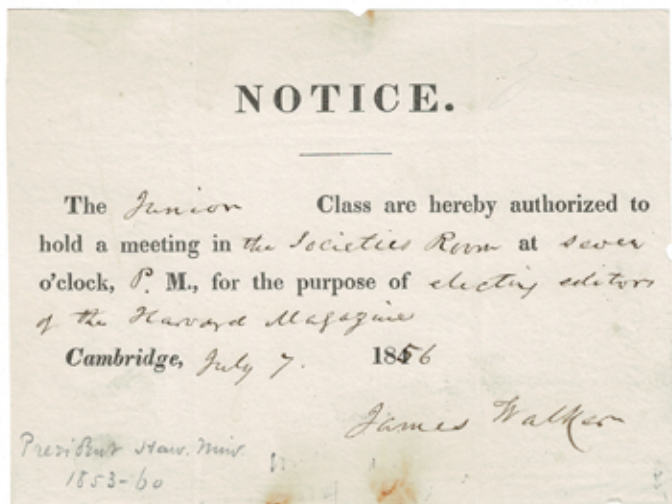 NOTICE.
The Junior Class are hereby authorized to
hold a meeting in the Societies Room at seven
o'clock, P. M., for the purpose of electing editors
of the Harvard Magazine
Cambridge, July 7. 1856
James Walker
President Harv. Univ.
1853-60